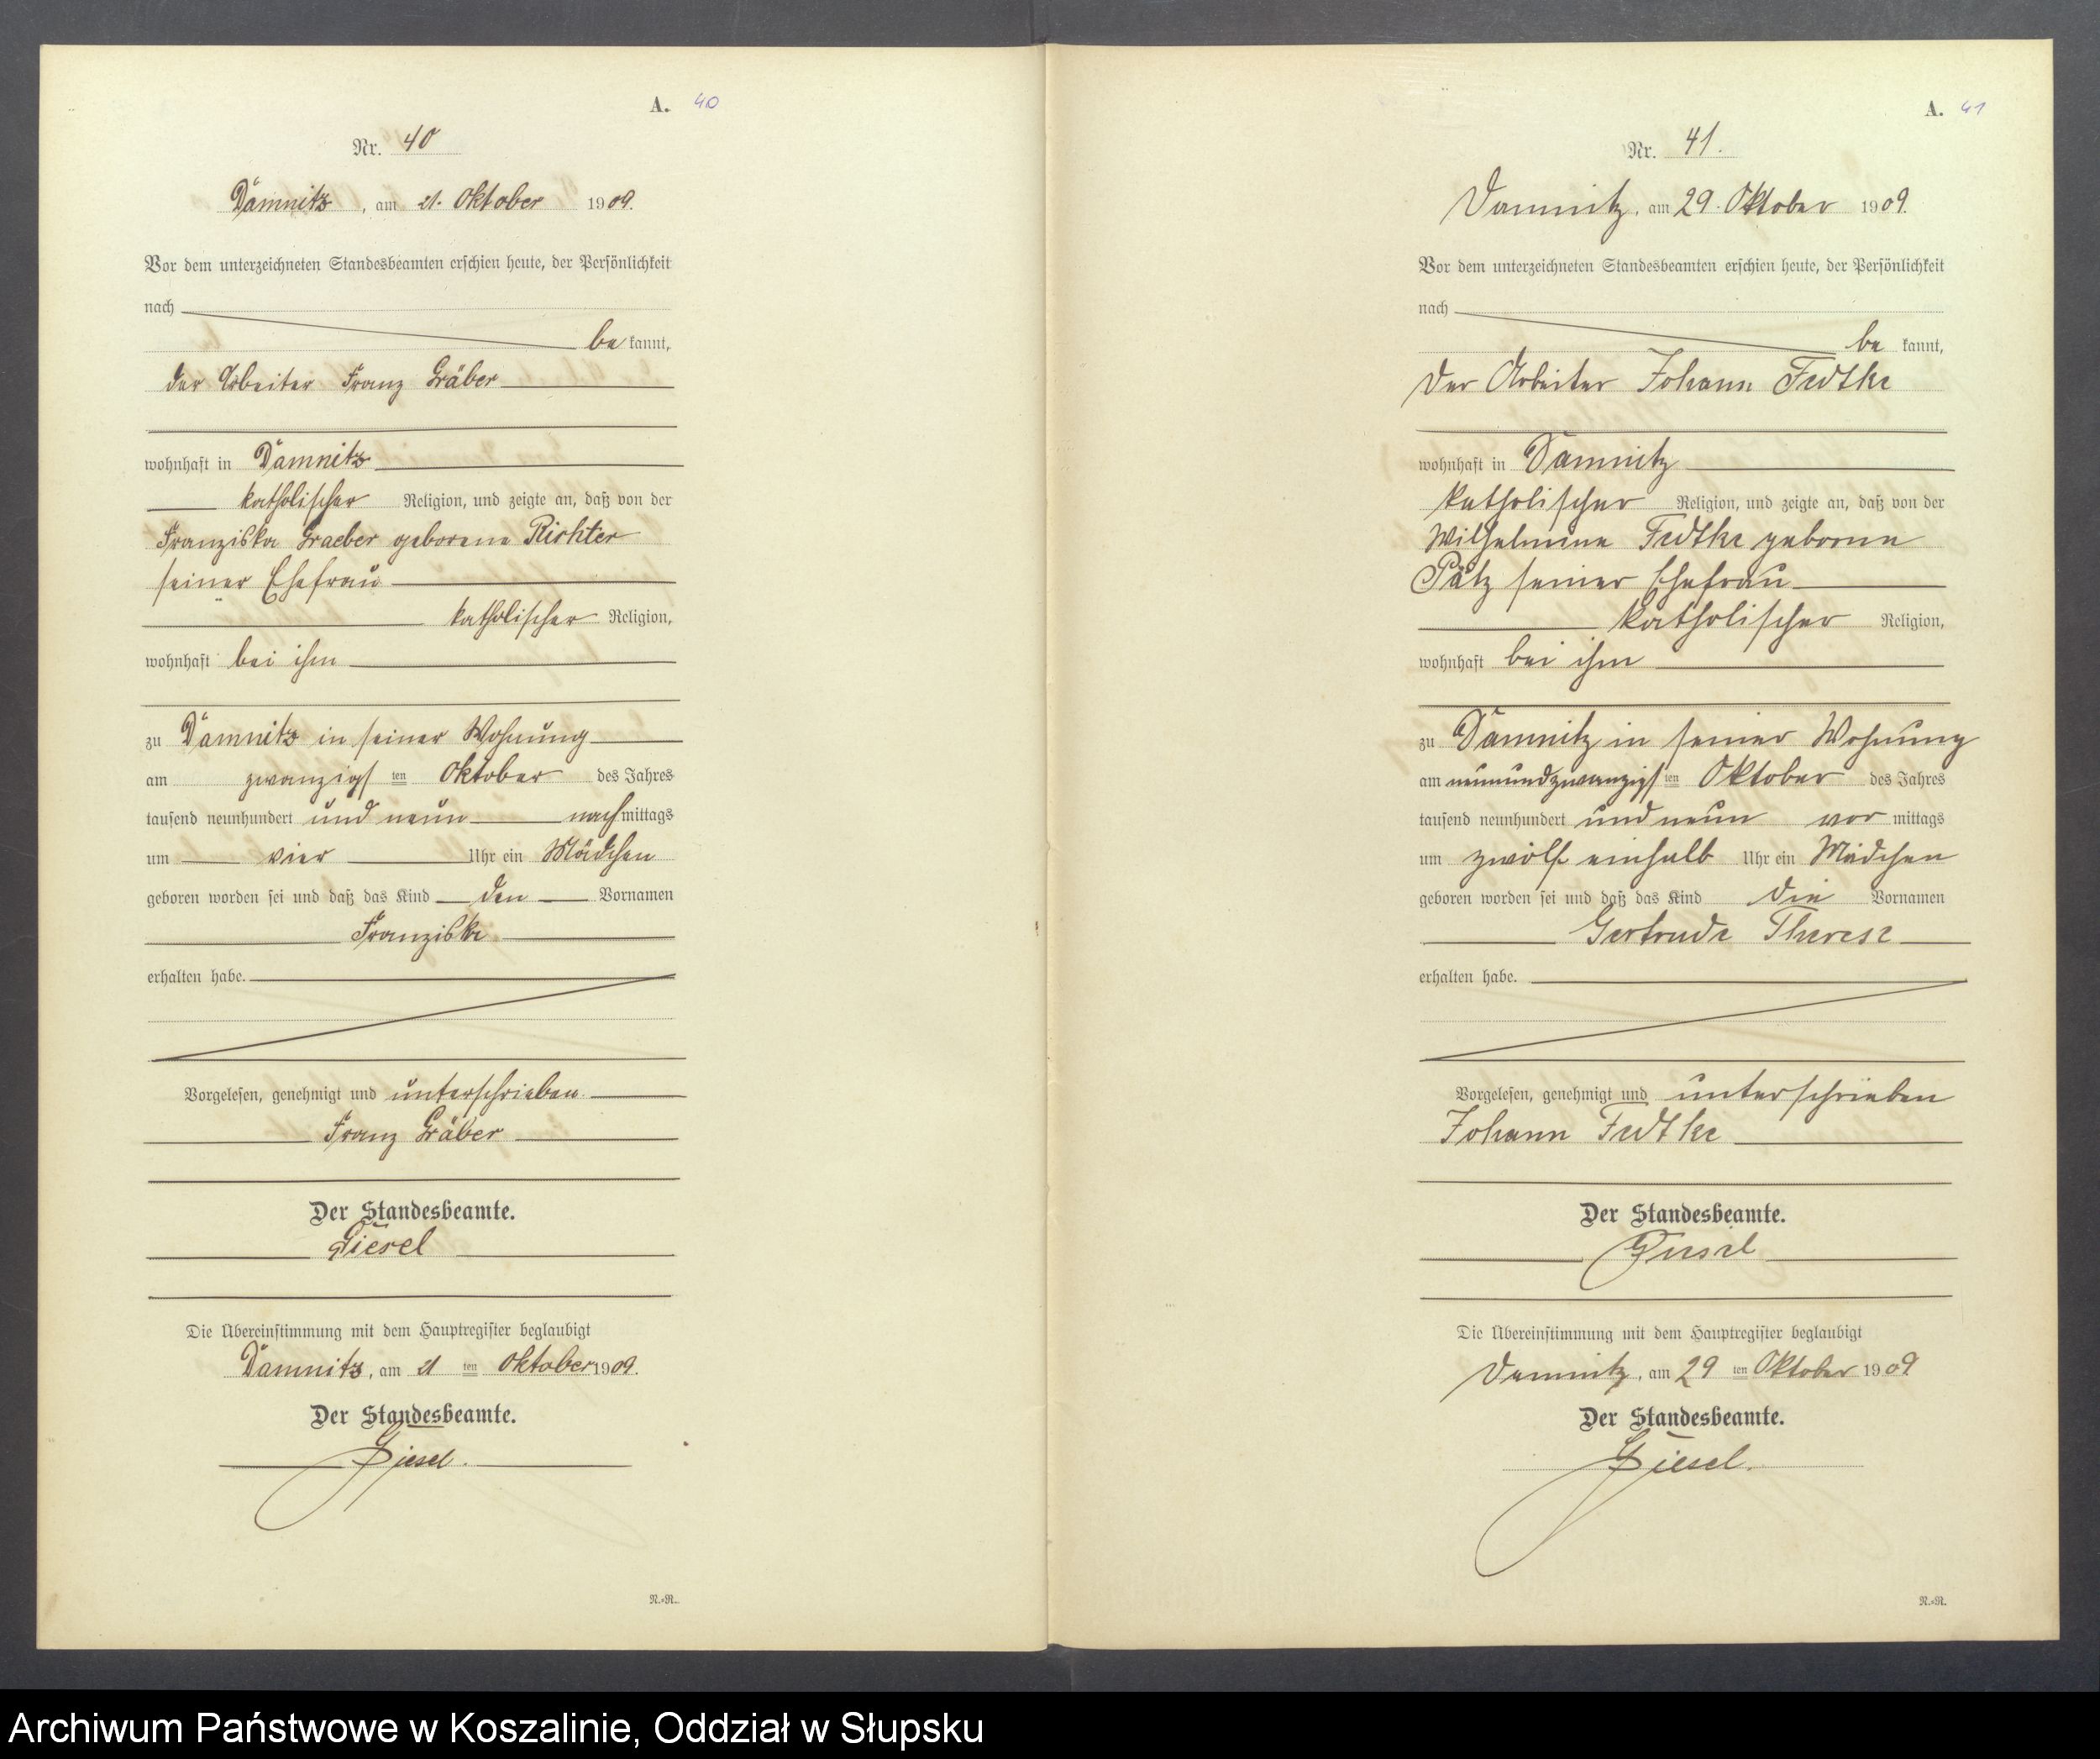 A. 40
Nr. 40
Damnitz, am 21. Oktober 1909.
Vor dem unterzeichneten Standesbeamten erschien heute, der Persönlichkeit
nach
be kannt,
der Arbeiter Franz Gräber
wohnhaft in Damnitz
katholischer Religion, und zeigte an, daß von der
Franziska Graeber geborene Richter
seiner Ehefrau
katholischer Religion,
wohnhaft bei ihm
zu Damnitz in seiner Wohnung
am zwanzigsten Oktober des Jahres
tausend neunhundert und neun nachmittags
um vier Uhr ein Mädchen
geboren worden sei und daß das Kind den Vornamen
Franziska
erhalten habe.
Vorgelesen, genehmigt und unterschrieben
Franz Gräber
Der Standesbeamte.
Giesel
Die Übereinstimmung mit dem Hauptregister beglaubigt
Damnitz, am 21 ten Oktober 1909.
Der Standesbeamte.
Giesel.
N.-R.
A. 41
Nr. 41.
Damnitz, am 29. Oktober 1909.
Vor dem unterzeichneten Standesbeamten erschien heute, der Persönlichkeit
nach
be kannt,
Der Arbeiter Johann Fedtke
wohnhaft in Damnitz
katholischer Religion, und zeigte an, daß von der
Wilhelmine Fedtke geborene
Pätz seiner Ehefrau
katholischer Religion,
wohnhaft bei ihm
zu Damnitz in seiner Wohnung
am neunundzwanzigsten Oktober des Jahres
tausend neunhundert und neun vor mittags
um zwölf einhalb Uhr ein Mädchen
geboren worden sei und daß das Kind die Vornamen
Gertrude Therese
erhalten habe.
Vorgelesen, genehmigt und unterschrieben
Johann Fedtke
Der Standesbeamte.
Giesel
Die Übereinstimmung mit dem Hauptregister beglaubigt
Damnitz, am 29 ten Oktober 1909
Der Standesbeamte.
Giesel.
N.-R.
Archiwum Państwowe w Koszalinie, Oddział w Słupsku